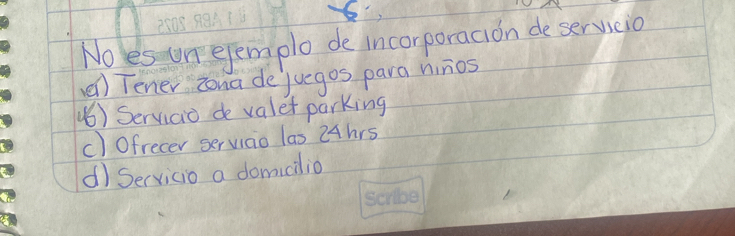 No es un ejemplo de incorporación de servicio
a) Tener zona de juegos para niños
b) Servicio de valet parking
c) Ofrecer servicio las 24 hrs
d) Servicio a domicilio
Scribe